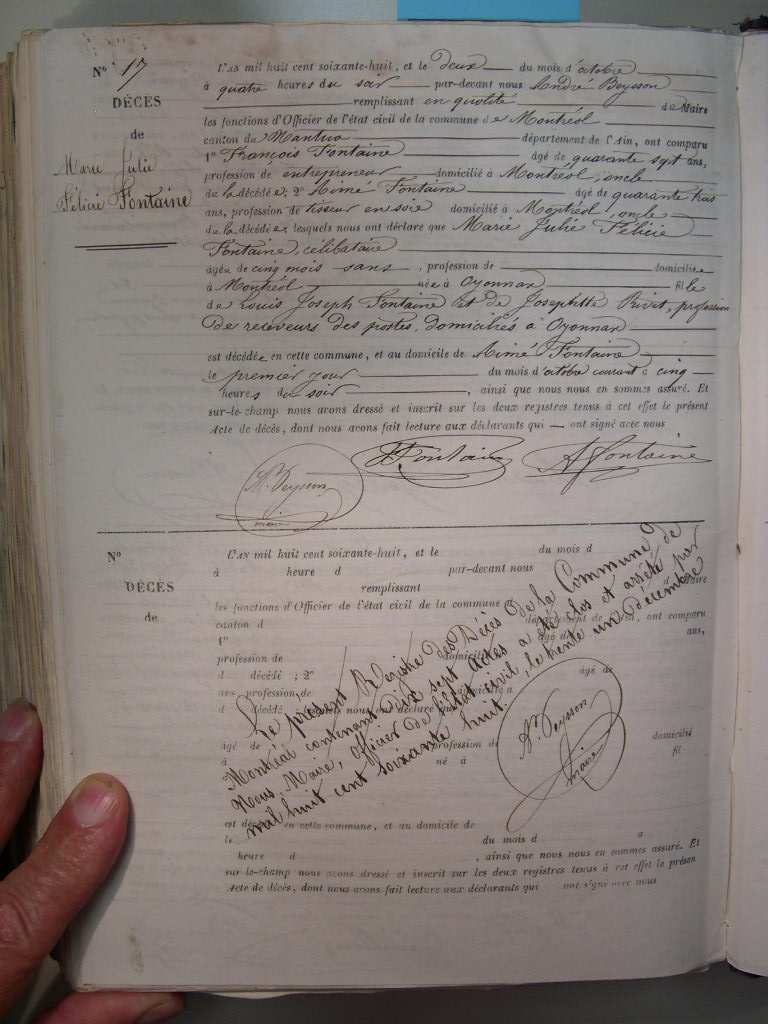 No 17
DÉCÈS
de
Marie Julie
Félicie Fontaine
L'AN mil huit cent soixante-huit, et le deux du mois d'octobre
à quatre heures du soir par-devant nous André Beysson
remplissant en qualité de Maire
les fonctions d'Officier de l'état civil de la commune de Montréal
canton de Nantua département de l'Ain, ont comparu
1o François Fontaine âgé de quarante sept ans,
profession de entrepreneur domicilié à Montréal, oncle
de la décédée; 2o Aimé Fontaine âgé de quarante trois
ans, profession de tisseur en soie domicilié à Montréal, oncle
de la décédée, lesquels nous ont déclaré que Marie Julie Félicie
Fontaine, célibataire
âgée de cinq mois sans, profession de domiciliée
à Montréal née à Oyonnax fille
de Louis Joseph Fontaine et de Josephtte Rivet, profession
de receveurs des postes, domiciliés à Oyonnax
est décédée en cette commune, et au domicile de Aimé Fontaine
le premier jour du mois d'octobre courant à cinq
heures du soir, ainsi que nous nous en sommes assuré. Et
sur-le-champ nous avons dressé et inscrit sur les deux registres tenus à cet effet le présent
Acte de décès, dont nous avons fait lecture aux déclarants qui — ont signé avec nous
An. Beysson
maire
F Fontaine
A Fontaine
No
DÉCÈS
de
L'AN mil huit cent soixante-huit, et le du mois d
à heure d par-devant nous
remplissant d Maire
les fonctions d'Officier de l'état civil de la commune d
canton d département de l'Ain, ont comparu
1o âgé de ans,
profession de domicilié à
d décédé ; 2o âgé de
ans, profession de domicilié à
d décédé, lesquels nous ont déclaré que
âgé de profession de domicilié
à né à fil
est décédé en cette commune, et au domicile de
le du mois d a
heure d , ainsi que nous nous en sommes assuré. Et
sur-le-champ nous avons dressé et inscrit sur les deux registres tenus à cet effet le présen
Acte de décès, dont nous avons fait lecture aux déclarants qui ont signé avec nous
Le présent Registre des Décès de la Commune de
Montréal contenant dix sept actes a été clos et arrêté par
Nous, Maire, Officier de l'état civil, le trente un décembre
mil huit cent soixante huit.
An. Beysson
maire